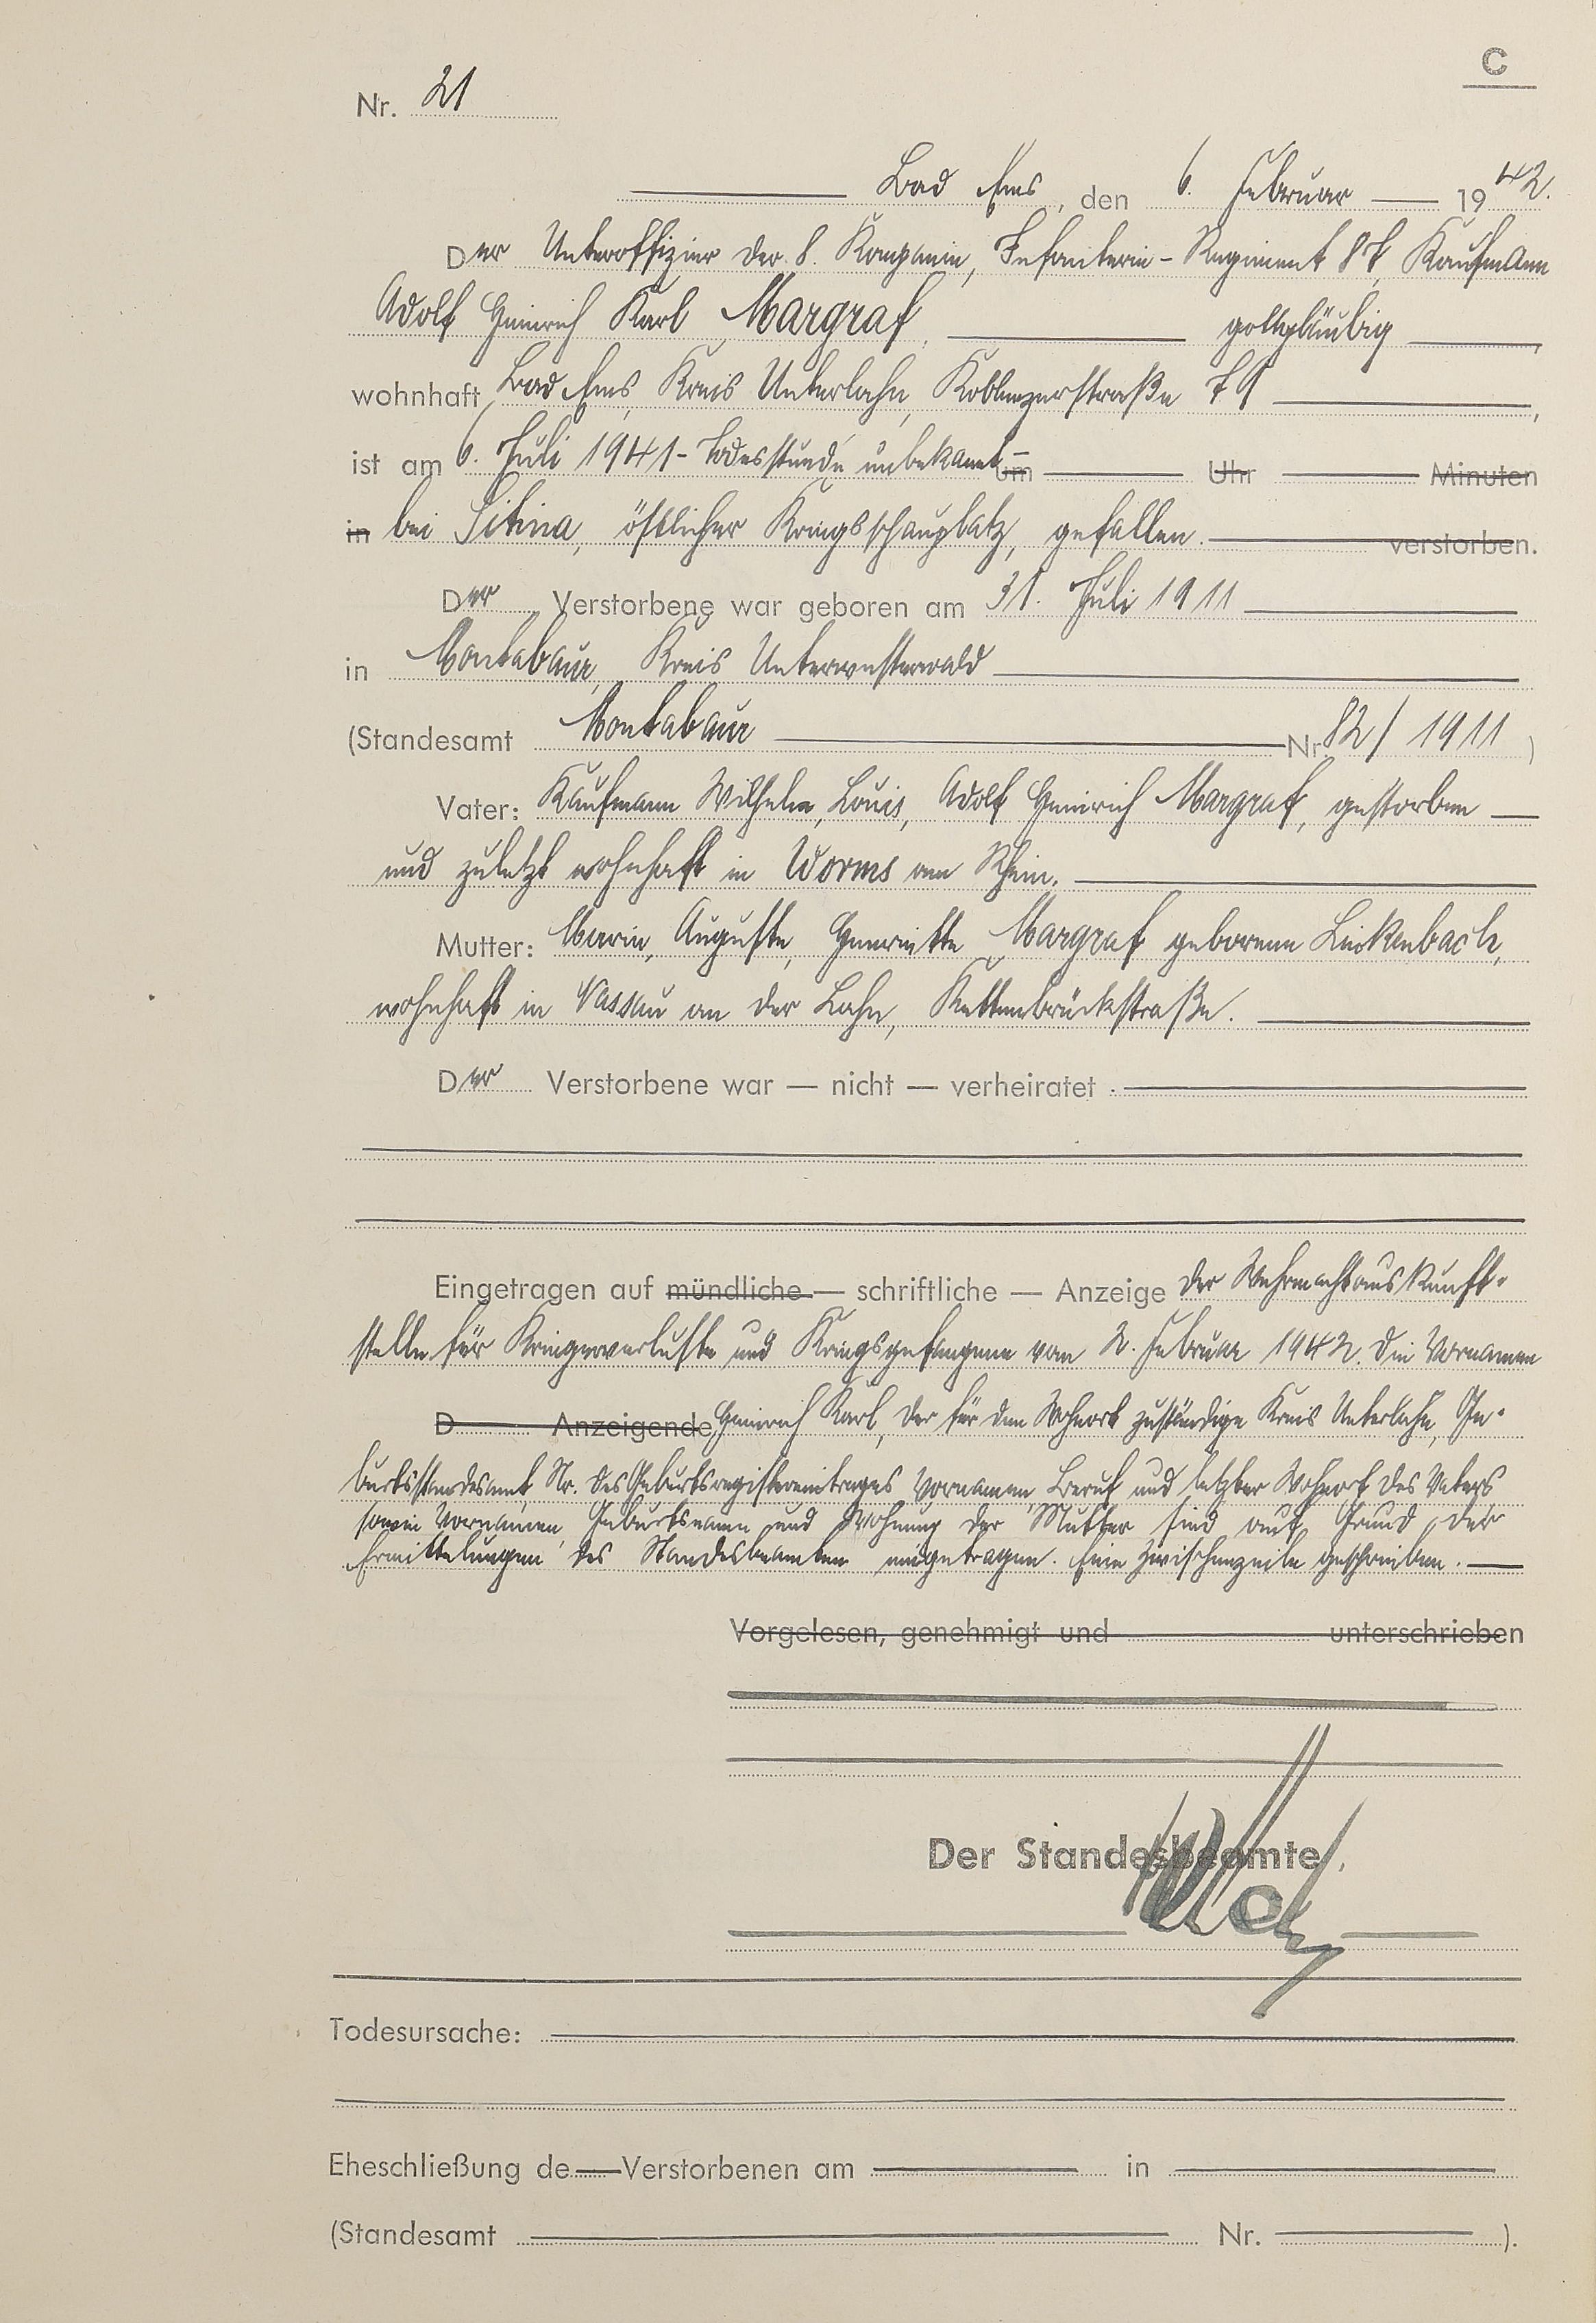 C
Nr. 21
Bad Ems, den 6. Februar 1942.
Der Unteroffizier der 8. Kompanie, Infanterie-Regiment 87, Kaufmann
Adolf Heinrich Karl Margraf, gottgläubig,
wohnhaft Bad Ems, Kreis Unterlahn, Koblenzerstraße 79,
ist am 6. Juli 1941 - Todesstunde unbekannt - um Uhr Minuten
in bei Sitina, östlicher Kriegsschauplatz, gefallen. verstorben.
Der Verstorbene war geboren am 31. Juli 1911
in Montabaur, Kreis Unterwesterwald
(Standesamt Montabaur Nr. 82/1911)
Vater: Kaufmann Wilhelm, Louis, Adolf Heinrich Margraf, gestorben
und zuletzt wohnhaft in Worms am Rhein.
Mutter: Marie, Auguste, Henriette Margraf geborene Linkenbach,
wohnhaft in Nassau an der Lahn, Kettenbrückstraße.
Der Verstorbene war — nicht — verheiratet.
Eingetragen auf mündliche — schriftliche — Anzeige der Wehrmachtauskunft-
stelle für Kriegerverluste und Kriegsgefangene vom 2. Februar 1942. Die Vornamen
D Anzeigende Heinrich Karl, der für den Wohnort zuständige Kreis Unterlahn, Ge-
burtsstandesamt, Nr. des Geburtsregistereintrages Vornamen, Beruf und letzter Wohnort des Vaters
sowie Vornamen, Geburtsname und Wohnung der Mutter sind auf Grund der
Ermittelungen des Standesbeamten eingetragen. Eine Zwischenzeile geschrieben.
Vorgelesen, genehmigt und unterschrieben
Der Standesbeamte
Todesursache:
Eheschließung de Verstorbenen am in
(Standesamt Nr. ).